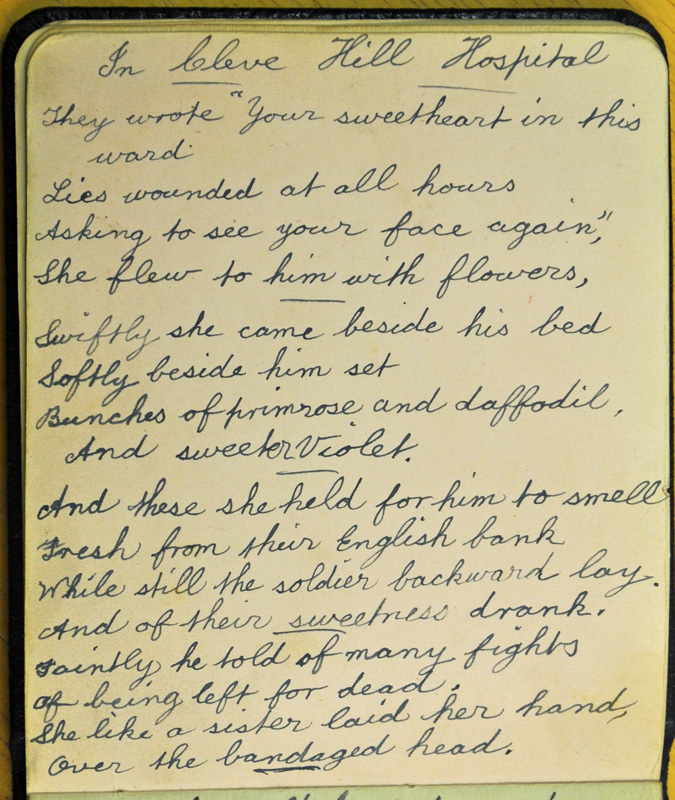 In Cleve Hill Hospital
They wrote "Your sweetheart in this
ward
Lies wounded at all hours
Asking to see your face again",
She flew to him with flowers,
Swiftly she came beside his bed
Softly beside him set
Bunches of primrose and daffodil,
And sweeter Violet.
And these she held for him to smell
Fresh from their English bank
While still the soldier backward lay.
And of their sweetness drank.
Faintly he told of many fights
Of being left for dead.
She like a sister laid her hand,
Over the bandaged head.